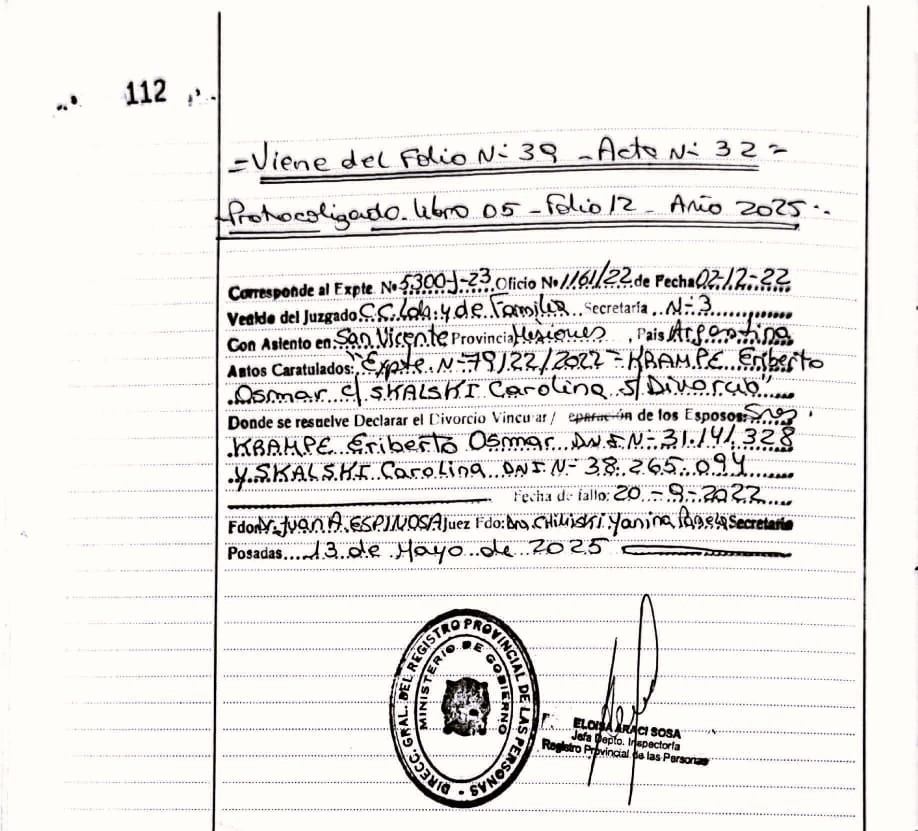 112
=Viene del Folio N° 39 - Acta N° 32=
-Protocoligado. Libro 05 - Folio 12 - Año 2025-.
Corresponde al Expte. Nº 5300-J-23 Oficio Nº 1161/22 de Fecha 02-12-22
Venido del Juzgado C.C. Lab. y de Familia Secretaría N-3
Con Asiento en: San Vicente Provincia Misiones, País Argentina
Autos Caratulados: "Expte. N-79/22/2022 - KRAMPE Eriberto
Osmar c/ SKALSKI Carolina s/ Divorcio"
Donde se resuelve Declarar el Divorcio Vincular / eparación de los Esposos: Sres.
KRAMPE Eriberto Osmar DNI N- 31.141.328
y SKALSKI Carolina DNI N- 38.265.094
Fecha de fallo: 20-9-2022
Fdo: Dr. Juan A. ESPINOSA Juez Fdo: Dra. CHILISKI Yanina Secretario
Posadas 13 de Mayo de 2025
DIRECC. GRAL. DEL REGISTRO PROVINCIAL DE LAS PERSONAS
MINISTERIO DE GOBIERNO
ELOISA ARACI SOSA
Jefa Depto. Inspectoría
Registro Provincial de las Personas